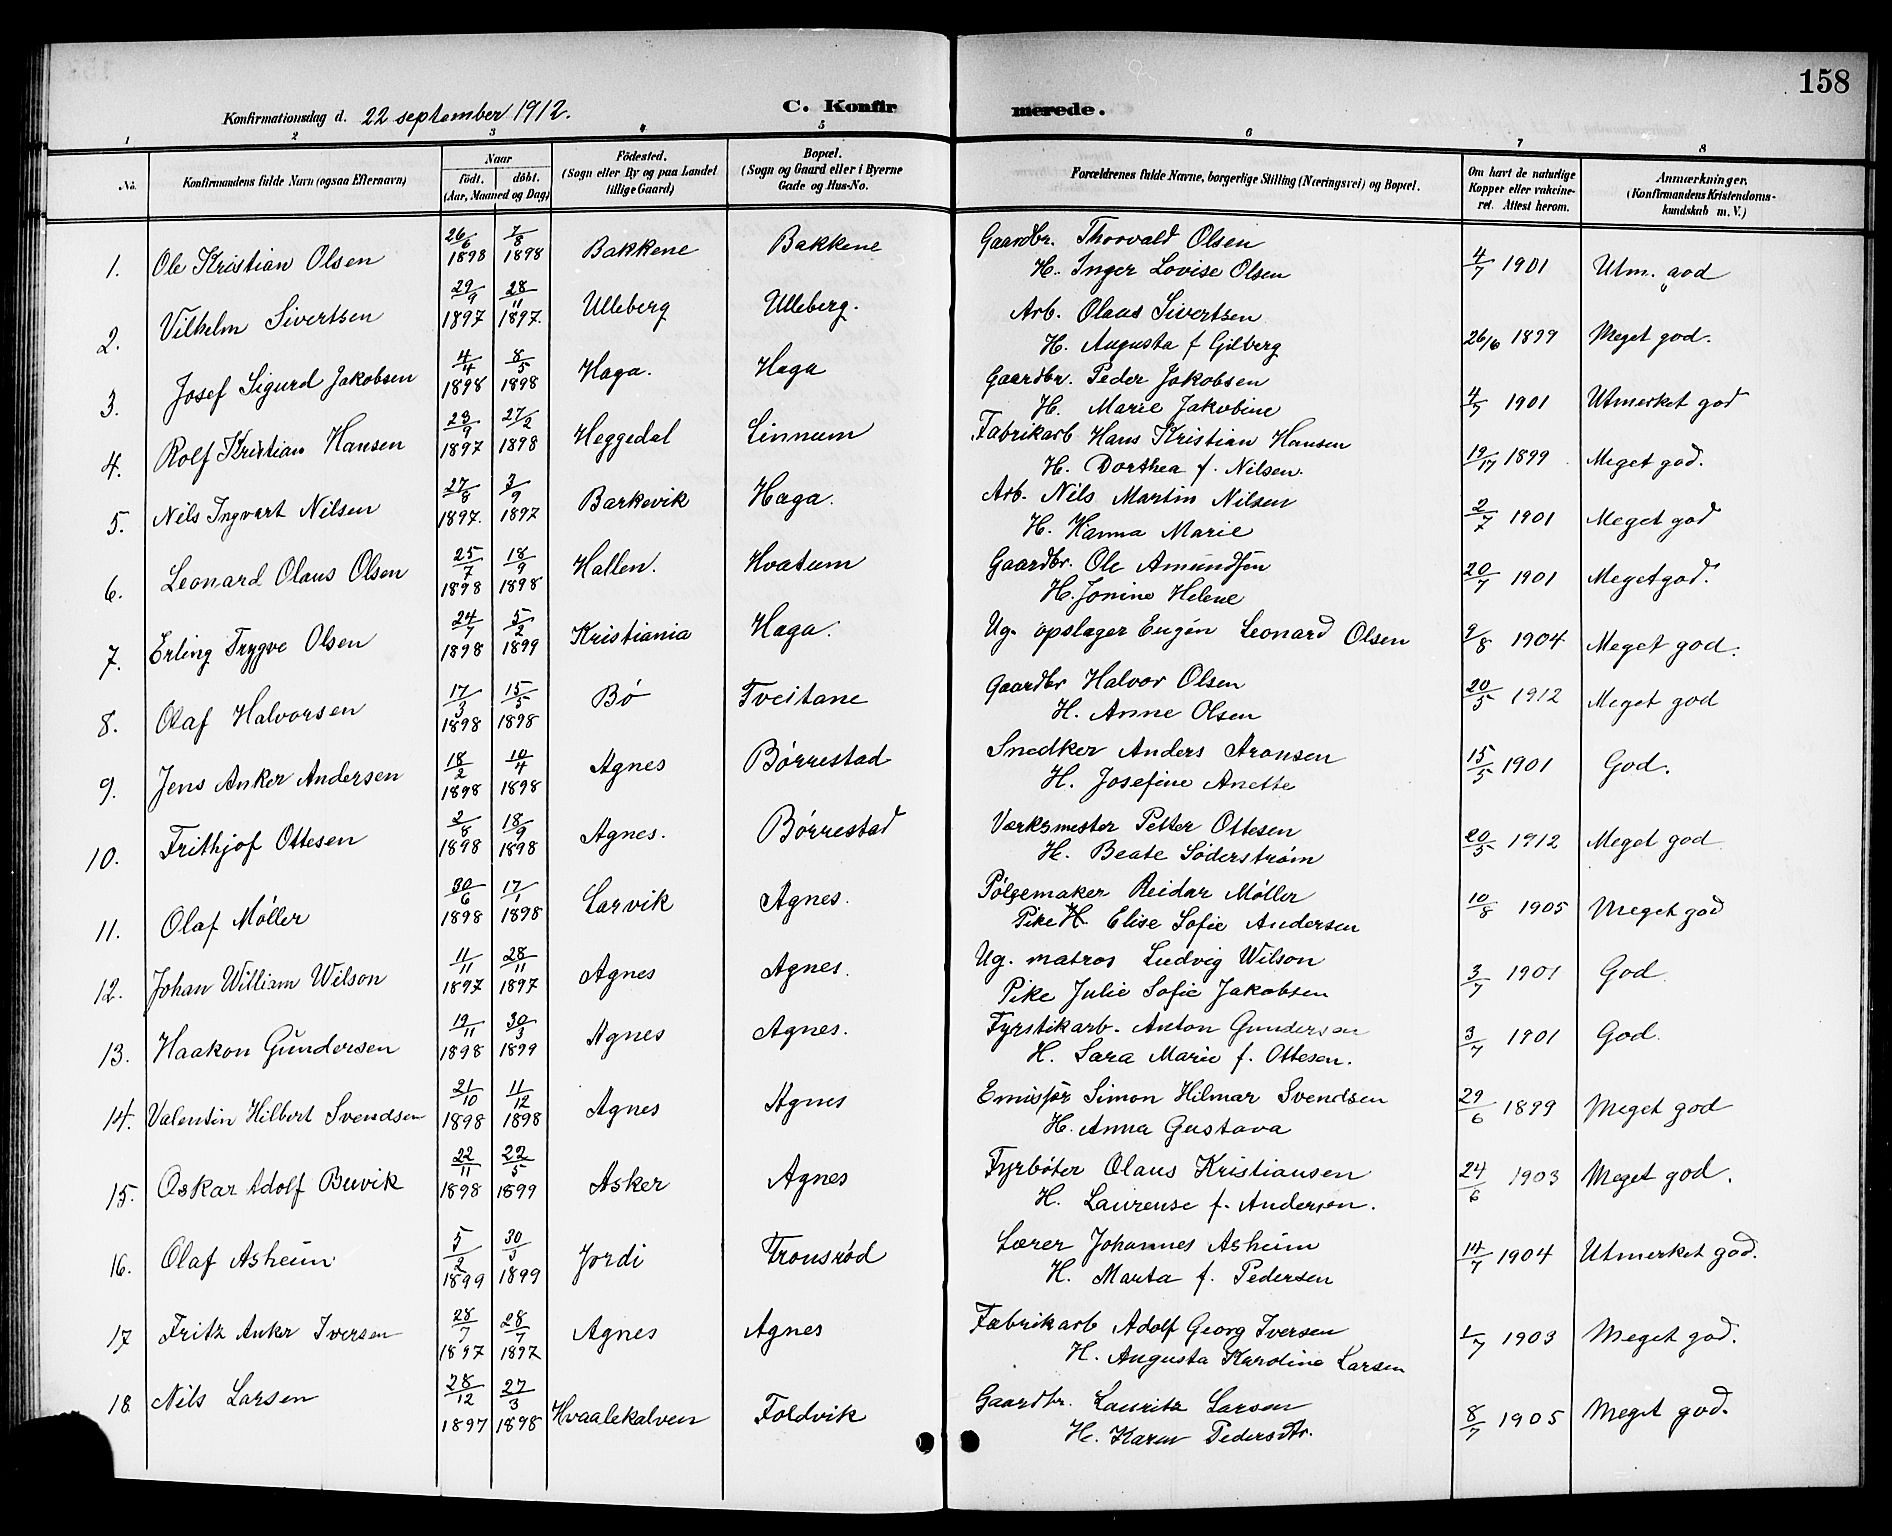 158
Konfirmationsdag d. 22 september 1912.
C. Konfirmerede.
1 2 3 4 5 6 7 8
No.
Konfirmandens fulde Navn (ogsaa Efternavn)
Naar
födt. döbt.
(Aar, Maaned og Dag)
Födested.
(Sogn eller By og paa Landet
tillige Gaard)
Bopæl.
(Sogn og Gaard eller i Byerne
Gade og Hus-No.
Forældrenes fulde Navne, borgerlige Stilling (Næringsvei) og Bopæl.
Om havt de naturlige
Kopper eller vakcine-
ret. Attest herom.
Anmærkninger.
(Konfirmandens Kristendoms-
kundskab m. V.)
1. Ole Kristian Olsen 26/6 1898 7/8 1898 Bakkene Bakkene Gaardbr. Thorvald Olsen 4/7 1901 Utm. god
H. Inger Lovise Olsen
2. Vilhelm Sivertsen 29/9 1897 28/11 1897. Ulleberg Ulleberg. Arb. Olaus Sivertsen 26/6 1899 Meget god.
H. Augusta f Gilberg
3. Josef Sigurd Jakobsen 4/4 1898 8/5 1898 Haga. Haga Gaardbr. Peder Jakobsen 4/7 1901 Utmerket god
H. Marie Jakobine
4. Rolf Kristian Hansen 23/9 1897 27/2 1898 Heggedal Linnum Fabrikarb Hans Kristian Hansen 1899 Meget god.
H. Dorthea f. Nilsen.
5. Nils Ingvart Nilsen 27/8 1897. 3/9 1897 Barkevik Haga. Arb. Nils Martin Nilsen 2/7 1901 Meget god
H. Hanna Marie
6. Leonard Olaus Olsen 25/7 1898 18/9 1898 Hallen. Hvatum Gaardbr. Ole Amundsen 20/7 1901 Meget god.
H. Jonine Helene
7. Erling Trygve Olsen 24/7 1898 5/2 1899 Kristiania Haga. Ug. opslager Eugén Leonard Olsen 9/8 1904 Meget god.
8. Olaf Halvorsen 17/3 1898 15/5 1898 Bø Tveitane Gaardbr Halvor Olsen 20/5 1912 Meget god
H. Anne Olsen
9. Jens Anker Andersen 18/2 1898 10/4 1898 Agnes Børrestad Snedker Anders Aronsen 15/5 1901 God.
H. Josefine Anette
10. Frithjof Ottesen 2/8 1898 18/9 1898 Agnes. Børrestad Værksmester Petter Ottesen 20/5 1912 Meget god
H. Beate Söderstrøm
11. Olaf Møller 30/6 1898 17/1 1898 Larvik Agnes. Pølsemaker Reidar Møller 10/8 1905 Meget god
Pike H Elise Sofie Andersen
12. Johan William Wilson 11/11 1897 28/11 1897 Agnes Agnes. Ug. matros Ludvig Wilson 3/7 1901 God
Pike Julie Sofie Jakobsen
13. Haakon Gundersen 19/11 1898 30/3 1899 Agnes Agnes. Fyrstikarb. Anton Gundersen 3/7 1901 God.
H. Sara Marie f. Ottesen.
14. Valentin Hilbert Svendsen 21/10 1898 11/12 1898 Agnes Agnes Emissær Simon Hilmar Svendsen 29/6 1899 Meget god
H. Anna Gustava
15. Oskar Adolf Buvik 22/11 1898 22/5 1899 Asker Agnes Fyrbøter Olaus Kristiansen 24/6 1903 Meget god.
H. Laurense f. Andersen.
16. Olaf Asheim 5/2 1899 30/3 1899 Jordi Fronsrød Lærer Johannes Asheim 14/7 1904 Utmerket god.
H. Marta f. Pedersen
17 Fritz Anker Iversen 28/7 1897 28/7 1897 Agnes Agnes Fabrikarb Adolf Georg Iversen 1/7 1903 Meget god.
H. Augusta Karoline Larsen
18. Nils Larsen 28/12 1897 27/3 1898 Hvaalekalven Foldvik Gaardbr. Lauritz Larsen 8/7 1905 Meget god.
H. Karen Pedersdtr.